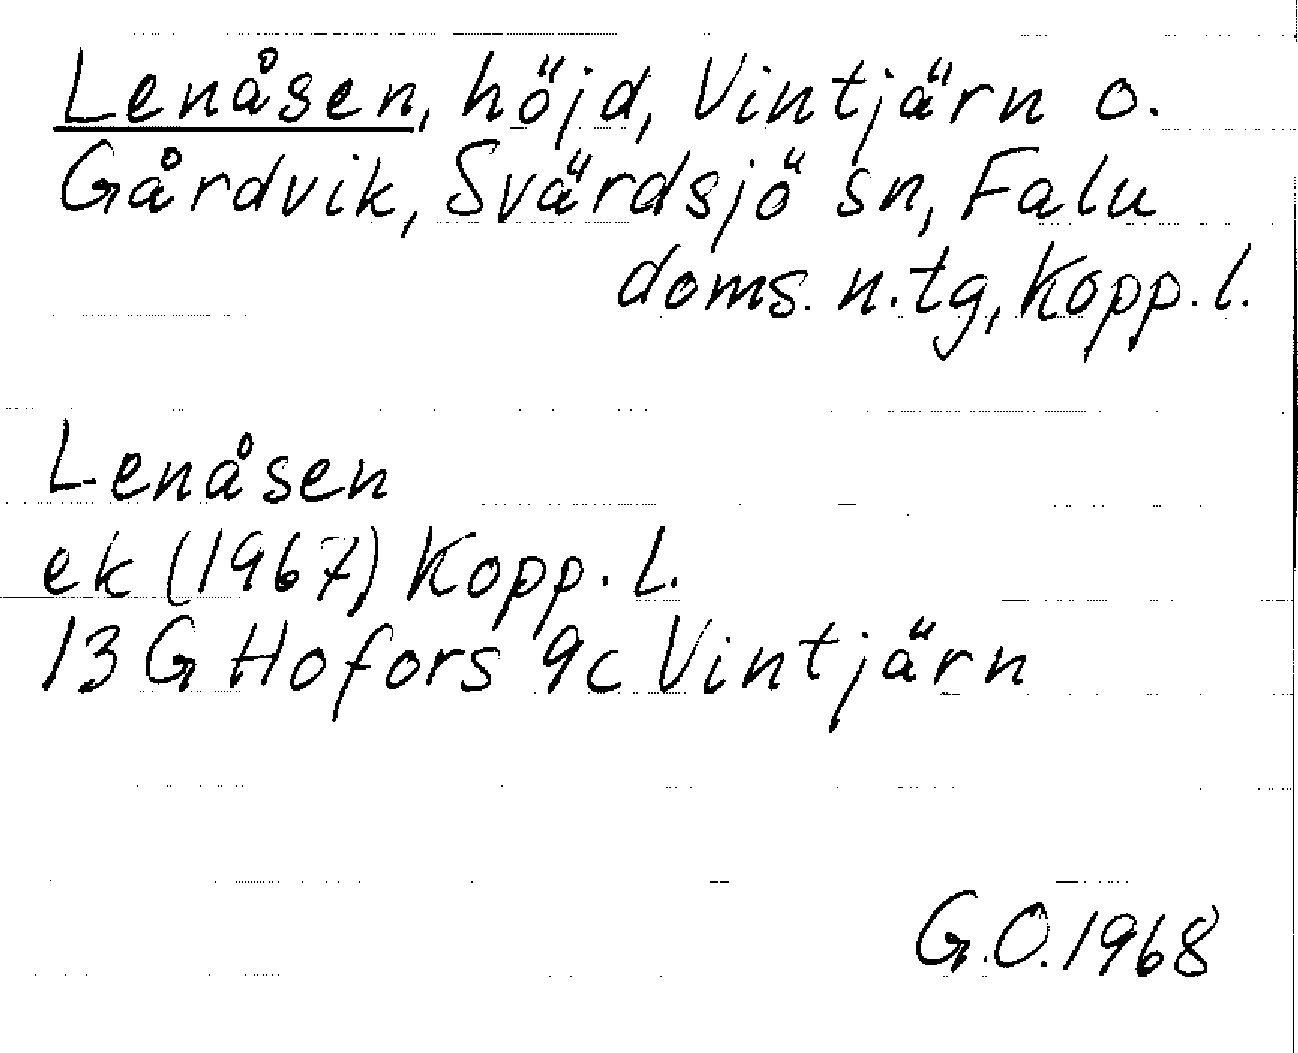 Lenåsen, höjd, Vintjärn o.
Gårdvik, Svärdsjö sn, Falu
doms. n. tg, Kopp. l.
Lenåsen
ek (1967) Kopp. l.
13 G Hofors 9c Vintjärn
G.O. 1968